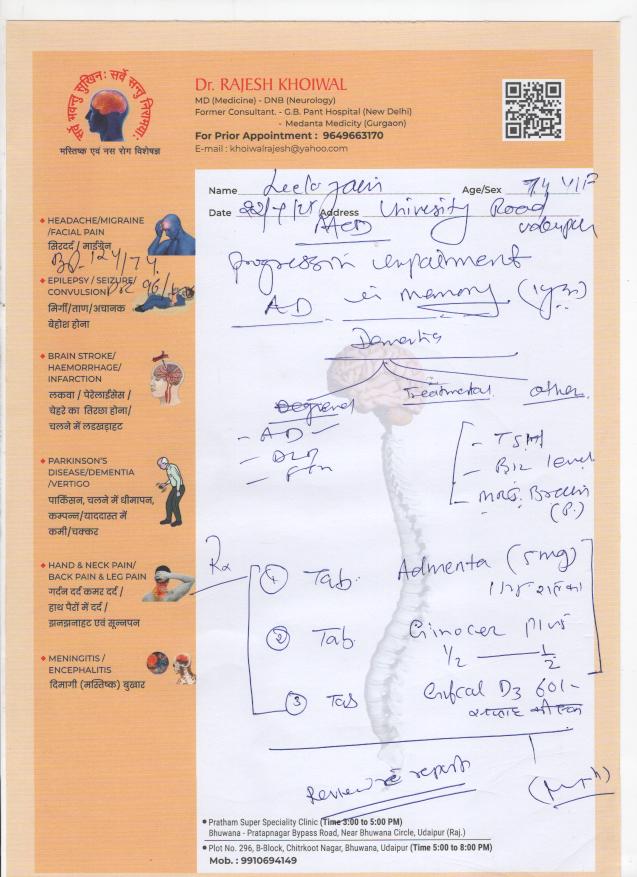 सर्वे भवन्तु सुखिनः सर्वे सन्तु निरामयाः
मस्तिष्क एवं नस रोग विशेषज्ञ
Dr. RAJESH KHOIWAL
MD (Medicine) - DNB (Neurology)
Former Consultant. - G.B. Pant Hospital (New Delhi)
- Medanta Medicity (Gurgaon)
For Prior Appointment : 9649663170
E-mail : khoiwalrajesh@yahoo.com
Name Leela Jain Age/Sex 74 Y/F
Date Address University Road
Udaipur
HEADACHE/MIGRAINE
/FACIAL PAIN
सिरदर्द / माईग्रेन
BP. 124/74
EPILEPSY / SEIZURE/
CONVULSION
मिर्गी/ताण/अचानक
बेहोश होना
BRAIN STROKE/
HAEMORRHAGE/
INFARCTION
लकवा / पेरेलाईसेस /
चेहरे का तिरछा होना/
चलने में लडखड़ाहट
PARKINSON'S
DISEASE/DEMENTIA
/VERTIGO
पार्किसन, चलने में धीमापन,
कम्पन्न/याददास्त में
कमी/चक्कर
HAND & NECK PAIN/
BACK PAIN & LEG PAIN
गर्दन दर्द कमर दर्द /
हाथ पैरों में दर्द /
झनझनाहट एवं सून्नपन
MENINGITIS /
ENCEPHALITIS
दिमागी (मस्तिष्क) बुखार
impairment
AD in memory
Dementia
Treatmental other
- AD
- TSH
- B12 level
- Brain
(P.)
Rx
1 Tab. Admenta (5mg)
2 Tab Ginocer Plus
1/2 — 1/2
3 Tab D3 60K
Review c report
Pratham Super Speciality Clinic (Time 3:00 to 5:00 PM)
Bhuwana - Pratapnagar Bypass Road, Near Bhuwana Circle, Udaipur (Raj.)
Plot No. 296, B-Block, Chitrkoot Nagar, Bhuwana, Udaipur (Time 5:00 to 8:00 PM)
Mob. : 9910694149